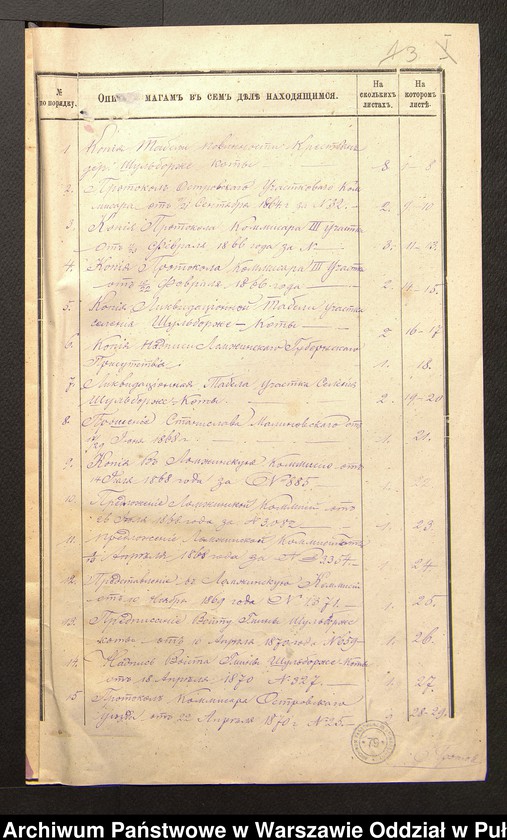 13 I
№ по порядку.
Опи магамъ въ семъ дѣлѣ находящимся.
На сколькихъ листахъ.
На котором листѣ.
1 Копія Табели повинности Крестьянъ
дер. Шульборже Коты 8 1 - 8
2. Протоколъ Островскаго Участковаго Ком
мисара отъ Сентября 1864 г за № 32. 2. 9-10
3. Копія Протокола Коммисара III участка
отъ Февраля 1866 года за № 3. 11-13.
4. Копія Протокола Коммисара III Участка
отъ Февраля 1866 года 2. 14 15.
5. Копія Ликвидаціонной Табели участка
селенія Шульборже-Коты 2 16-17
6. Копія Надписи Ломжинскаго Губернскаго
Присутствія 1. 18.
7. Ликвидаціонная Табель участка Селенія
Шульборже Коты. 2. 19-20
8. Прошеніе Станислава Малиновскаго отъ
Іюня 1868 г. 1. 21.
9. Копія въ Ломжинскую Коммисію отъ
Іюля 1868 года за № 885 1. 22.
10. Предложеніе Ломжинской Коммисіи отъ
26 Іюля 1868 года за № 1. 23.
11. Предложеніе Ломжинской Коммисіи отъ
Апрѣля 1868 года за № 3354 1. 24.
12. Представленіе въ Ломжинскую Коммисію
отъ Ноября 1869 года № 1371. 1. 25.
13. Предписаніе Войту Гмины Шульборже
Коты отъ 10 Апрѣля 1870 года № 659 1. 26.
14. Надпись Войта Гмины Шульборже Коты
отъ 18 Апрѣля 1870 № 327. 1. 27.
15 Протоколъ Коммисара Островскаго
уѣзда отъ 22 Апрѣля 1870 г. № 25. 28-29.
79
Archiwum Państwowe w Warszawie Oddział w Puł